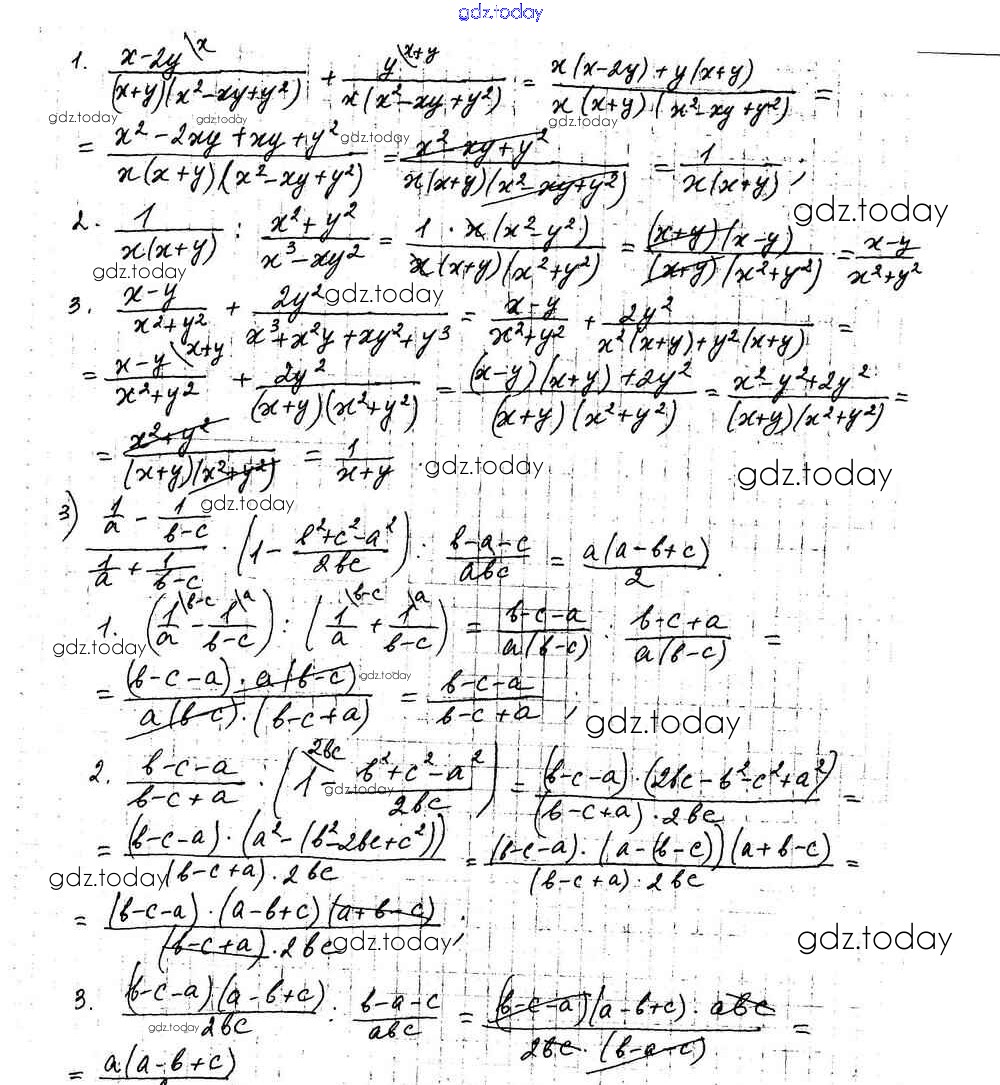 gdz.today
1. (x-2y \x)/((x+y)(x²-xy+y²)) + (y \x+y)/(x(x²-xy+y²)) = (x(x-2y)+y(x+y))/(x(x+y)(x²-xy+y²)) =
gdz.today gdz.today gdz.today
= (x²-2xy+xy+y²)/(x(x+y)(x²-xy+y²)) = (x²-xy+y²)/(x(x+y)(x²-xy+y²)) = 1/(x(x+y));
gdz.today gdz.today
2. 1/(x(x+y)) : (x²+y²)/(x³-xy²) = (1·x(x²-y²))/(x(x+y)(x²+y²)) = ((x+y)(x-y))/((x+y)(x²+y²)) = (x-y)/(x²+y²)
gdz.today
3. (x-y)/(x²+y²) + 2y²/(x³+x²y+xy²+y³) = (x-y)/(x²+y²) + 2y²/(x²(x+y)+y²(x+y)) =
gdz.today
= (x-y \x+y)/(x²+y²) + 2y²/((x+y)(x²+y²)) = ((x-y)(x+y)+2y²)/((x+y)(x²+y²)) = (x²-y²+2y²)/((x+y)(x²+y²)) =
= (x²+y²)/((x+y)(x²+y²)) = 1/(x+y).
gdz.today gdz.today
gdz.today
3) (1/a - 1/(b-c))/(1/a + 1/(b-c)) · (1 - (b²+c²-a²)/2bc) : (b-a-c)/abc = (a(a-b+c))/2
1. (1/a \b-c - 1/(b-c) \a) : (1/a \b-c + 1/(b-c) \a) = (b-c-a)/(a(b-c)) : (b-c+a)/(a(b-c)) =
gdz.today
= ((b-c-a)·a(b-c))/(a(b-c)·(b-c+a)) = (b-c-a)/(b-c+a);
gdz.today gdz.today
2. (b-c-a)/(b-c+a) : (1 \2bc - (b²+c²-a²)/2bc) = ((b-c-a)·(2bc-b²-c²+a²))/((b-c+a)·2bc) =
gdz.today
= ((b-c-a)·(a²-(b²-2bc+c²)))/((b-c+a)·2bc) = ((b-c-a)·(a-(b-c))(a+b-c))/((b-c+a)·2bc) =
gdz.today
= ((b-c-a)·(a-b+c)(a+b-c))/((b-c+a)·2bc);
gdz.today gdz.today
3. ((b-c-a)(a-b+c))/2bc : (b-a-c)/abc = ((b-c-a)(a-b+c)·abc)/(2bc·(b-a-c)) =
gdz.today
= a(a-b+c)